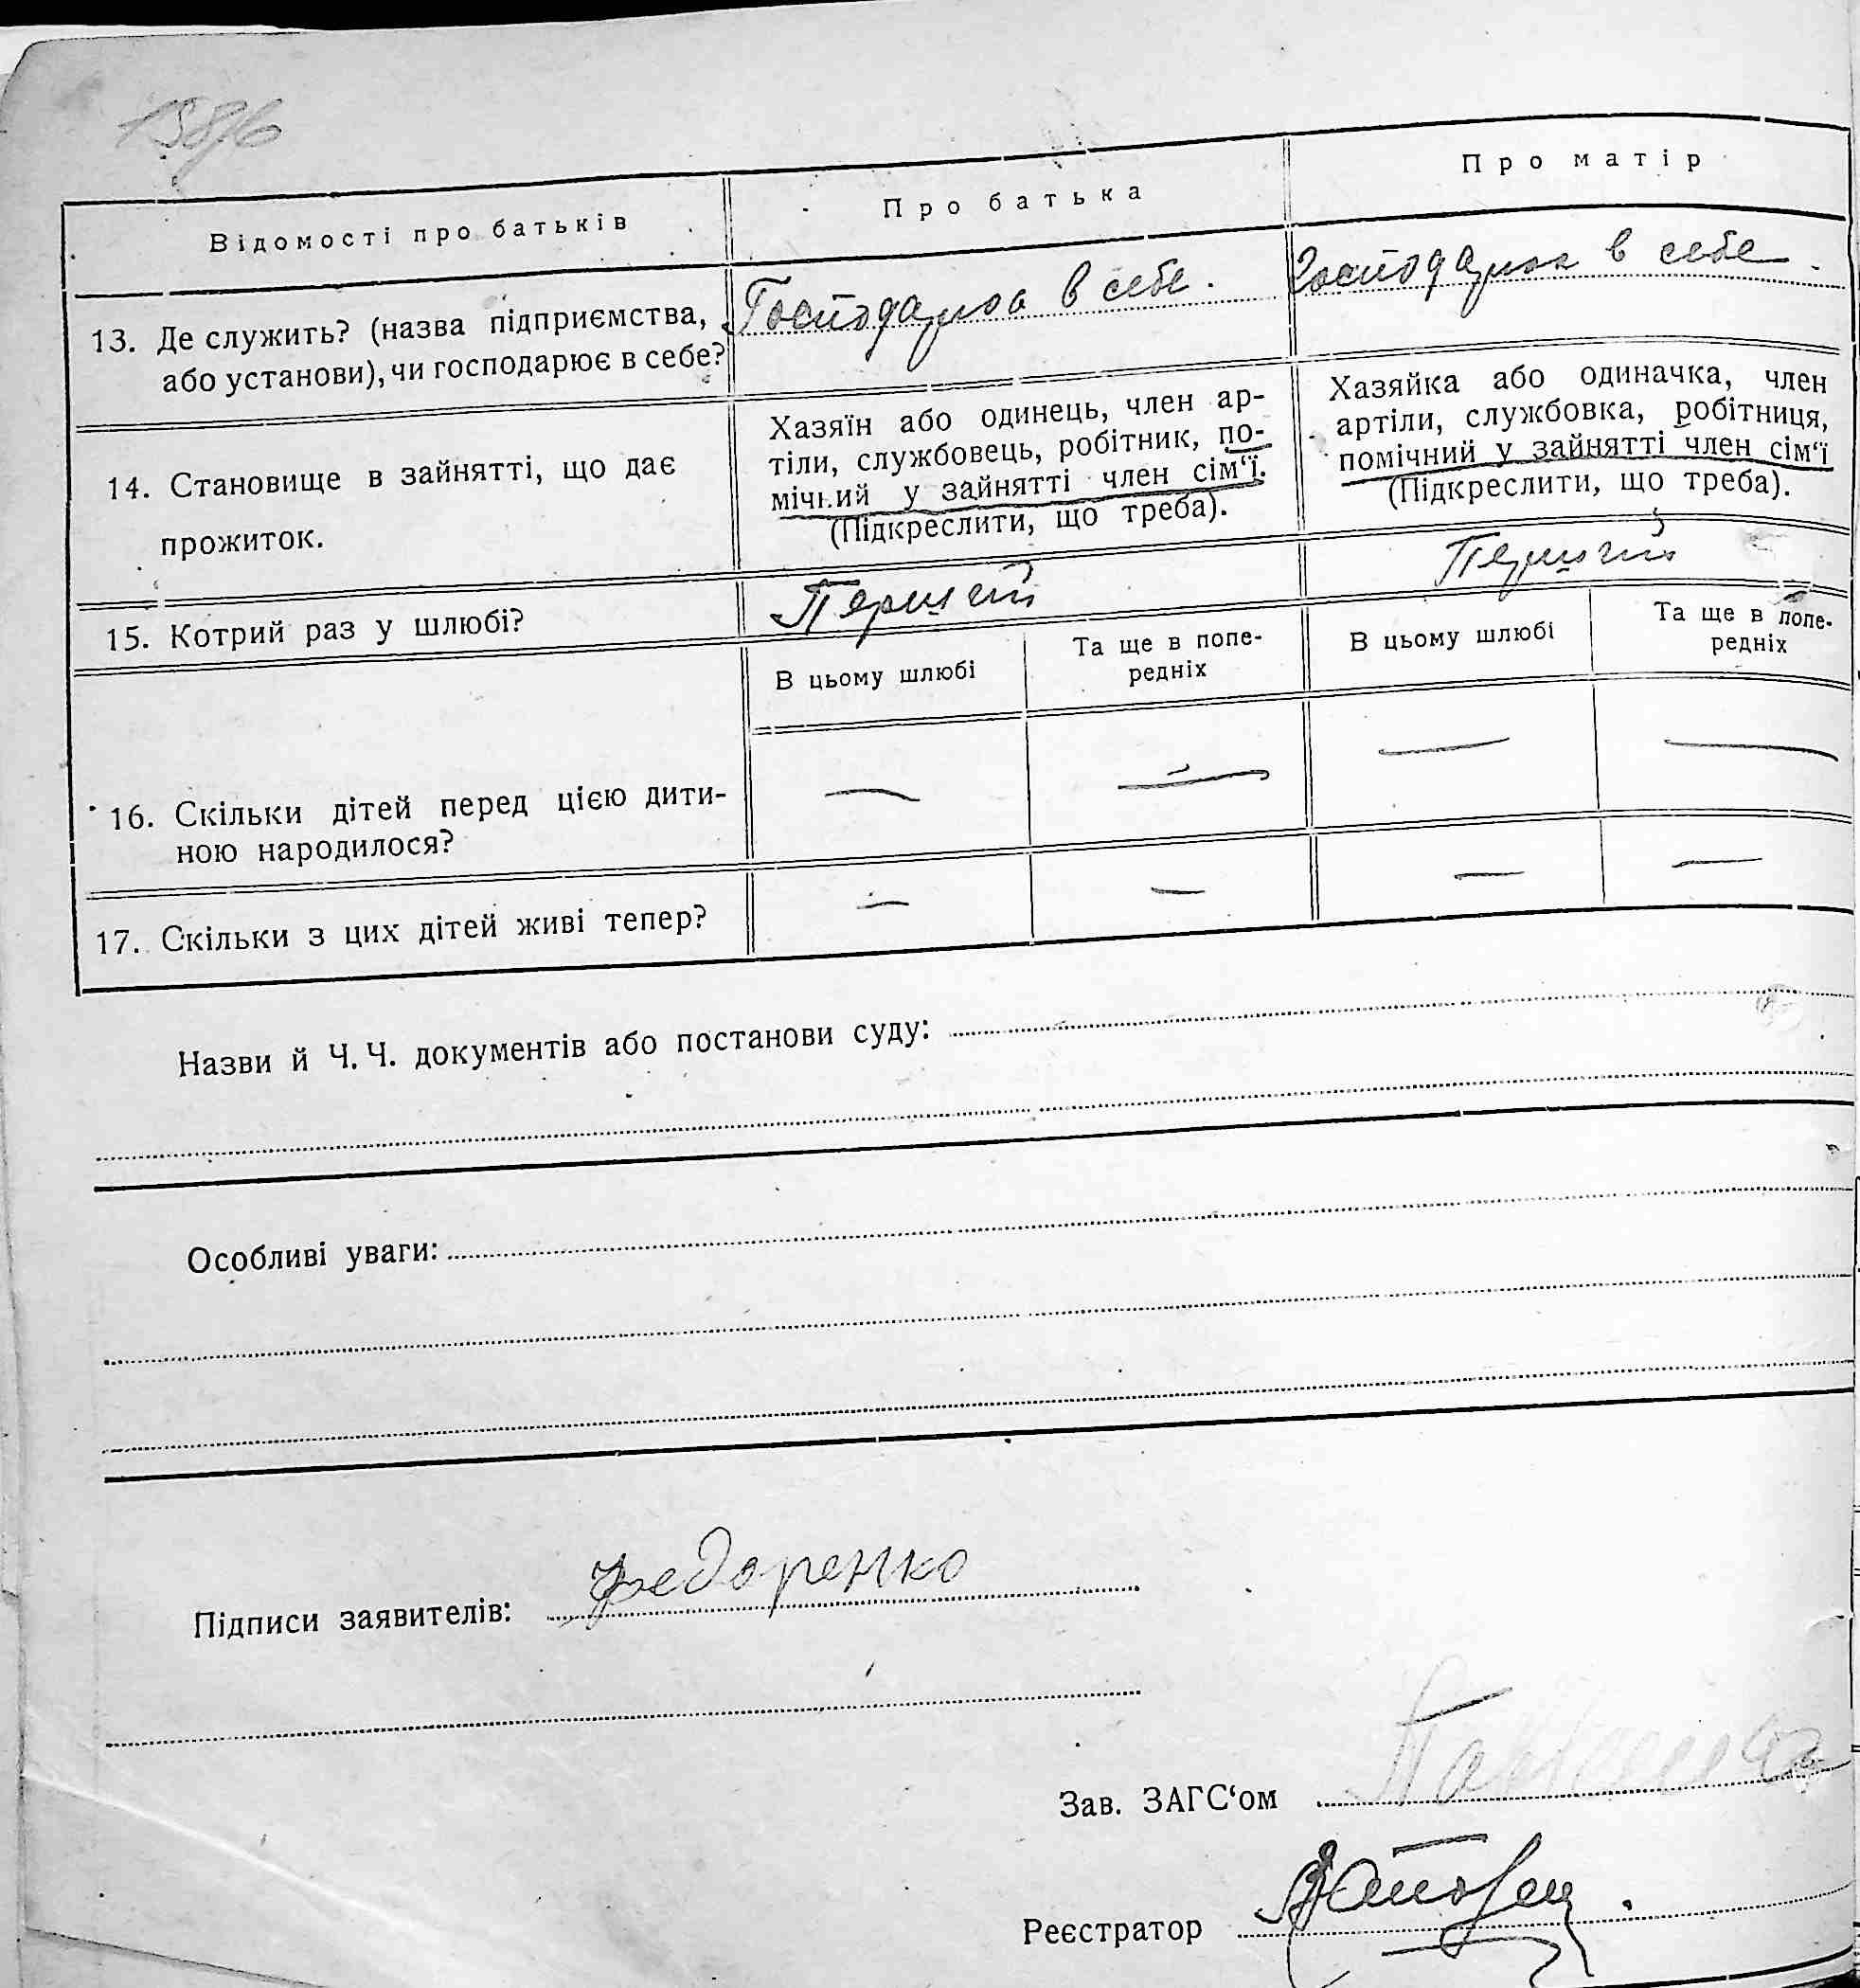 Відомості про батьків
Про батька
Про матір
13. Де служить? (назва підприємства,
або установи), чи господарює в себе?
Господарює в себе.
Господарює в себе.
14. Становище в зайнятті, що дає
прожиток.
Хазяїн або одинець, член ар-
тіли, службовець, робітник, по-
мічний у зайнятті член сім‘ї.
(Підкреслити, що треба).
Хазяйка або одиначка, член
артіли, службовка, робітниця,
помічний у зайнятті член сім‘ї
(Підкреслити, що треба).
15. Котрий раз у шлюбі?
Перший
Перший
В цьому шлюбі
Та ще в попе-
редніх
В цьому шлюбі
Та ще в попе-
редніх
16. Скільки дітей перед цією дити-
ною народилося?
— — — —
17. Скільки з цих дітей живі тепер?
— — — —
Назви й Ч. Ч. документів або постанови суду:
Особливі уваги:
Підписи заявителів: Федоренко
Зав. ЗАГС‘ом
Реєстратор